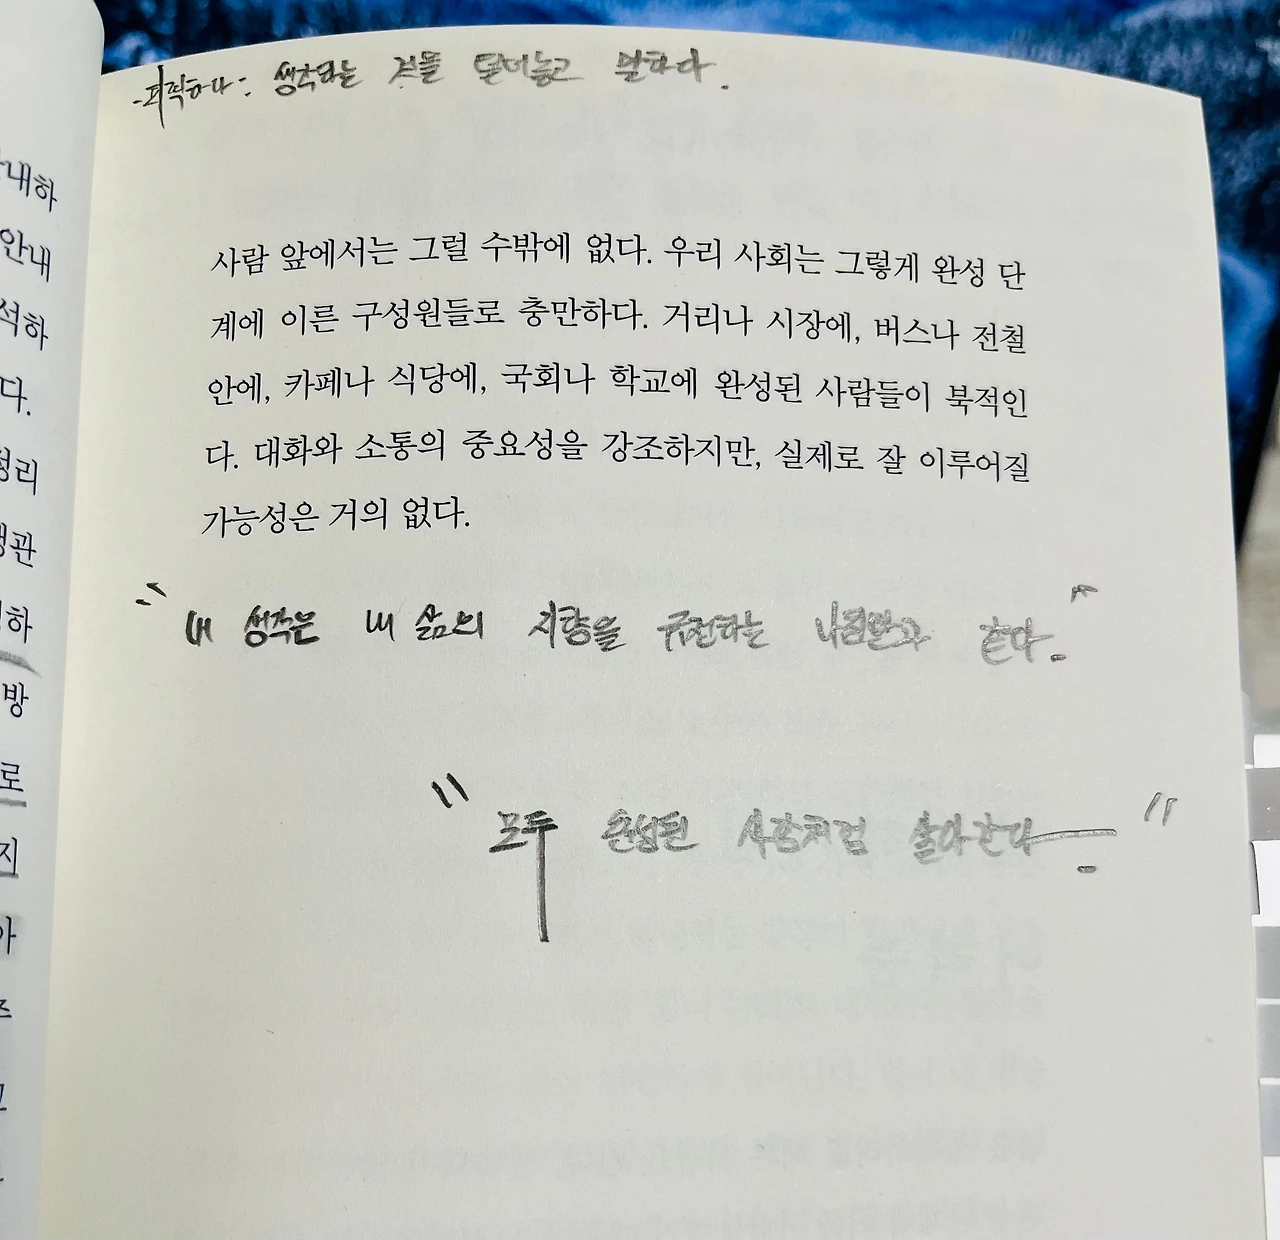 -피력하다: 생각하는 것을 털어놓고 말하다.
사람 앞에서는 그럴 수밖에 없다. 우리 사회는 그렇게 완성 단
계에 이른 구성원들로 충만하다. 거리나 시장에, 버스나 전철
안에, 카페나 식당에, 국회나 학교에 완성된 사람들이 북적인
다. 대화와 소통의 중요성을 강조하지만, 실제로 잘 이루어질
가능성은 거의 없다.
"내 생각은 내 삶의 지향을 규정하는 나침반과 같다."
"모두 완성된 사람처럼 살아간다."
내하
안내
석하
다.
정리
관
하
방
로
지
아